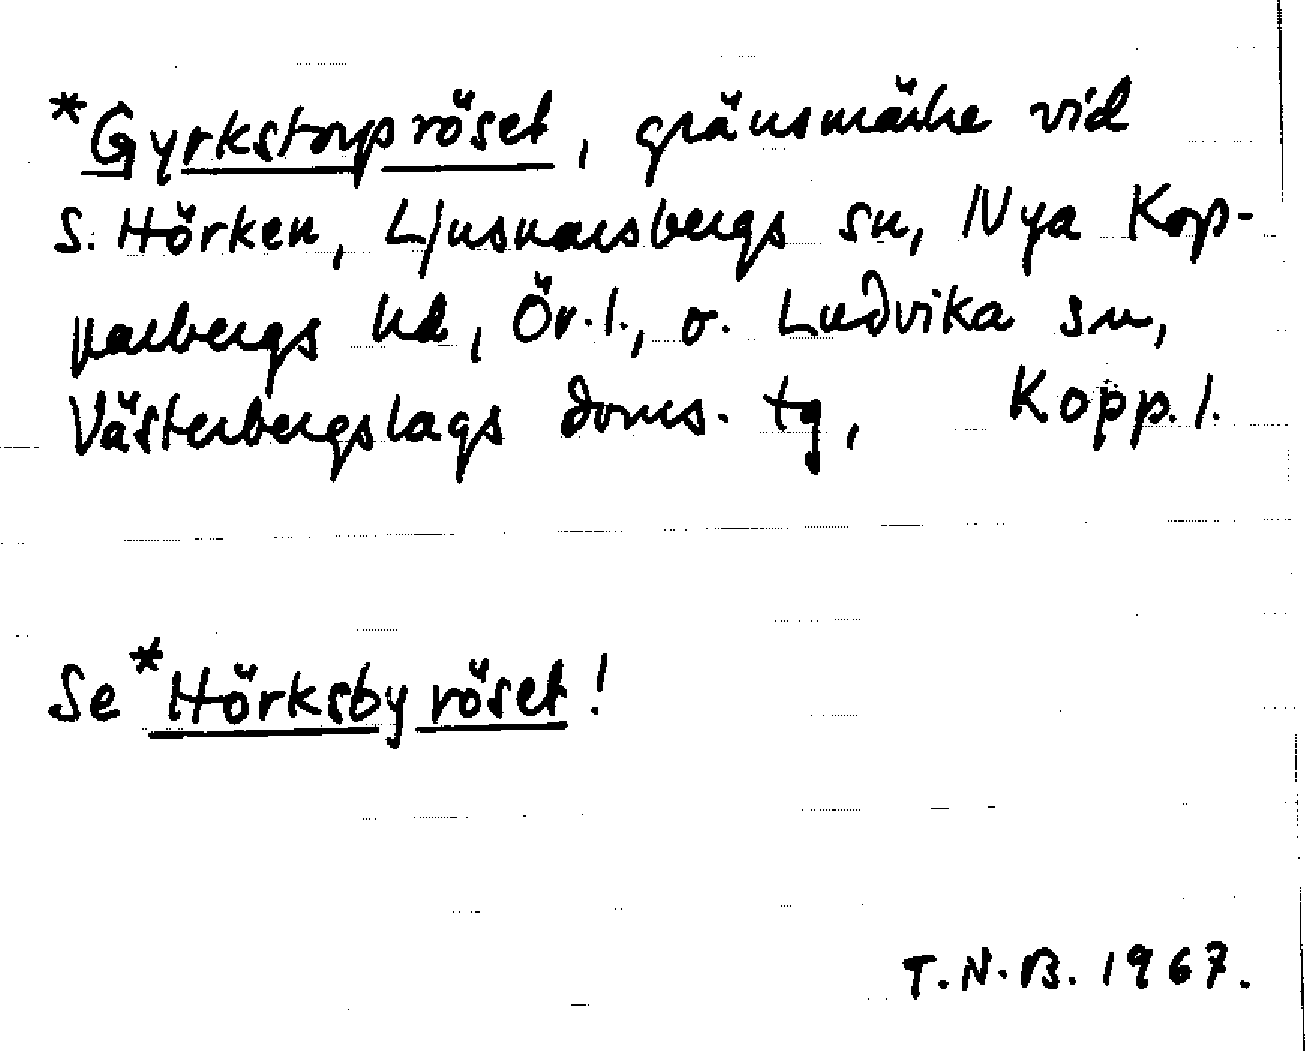 *Gyrkstorpröset, gränsmärke vid
S. Hörken, Ljusnarsbergs sn, Nya Kop-
parbergs hd, Ör. l., o. Ludvika sn,
Västerbergslags doms. tg, Kopp. l.
Se *Hörksbyröset!
T.N.B. 1967.